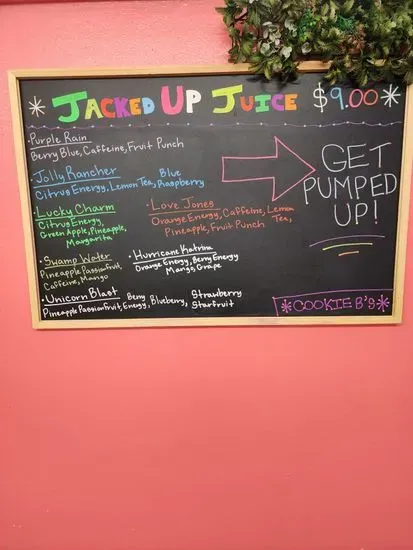 * JACKED UP JUICE $9.00 *
Purple Rain
Berry Blue, Caffeine, Fruit Punch
• Jolly Rancher
Citrus Energy, Lemon Tea, Blue Raspberry
• Lucky Charm
Citrus Energy
Green Apple, Pineapple,
Margarita
• Love Jones
Orange Energy, Caffeine, Lemon Tea,
Pineapple, Fruit Punch
• Swamp Water
Pineapple Passionfruit,
Caffeine, Mango
• Hurricane Katrina
Orange Energy, Berry Energy
Mango, Grape
• Unicorn Blast
Pineapple Passionfruit, Berry Energy, Blueberry, Strawberry Starfruit
GET
PUMPED
UP!
*COOKIE B'S*